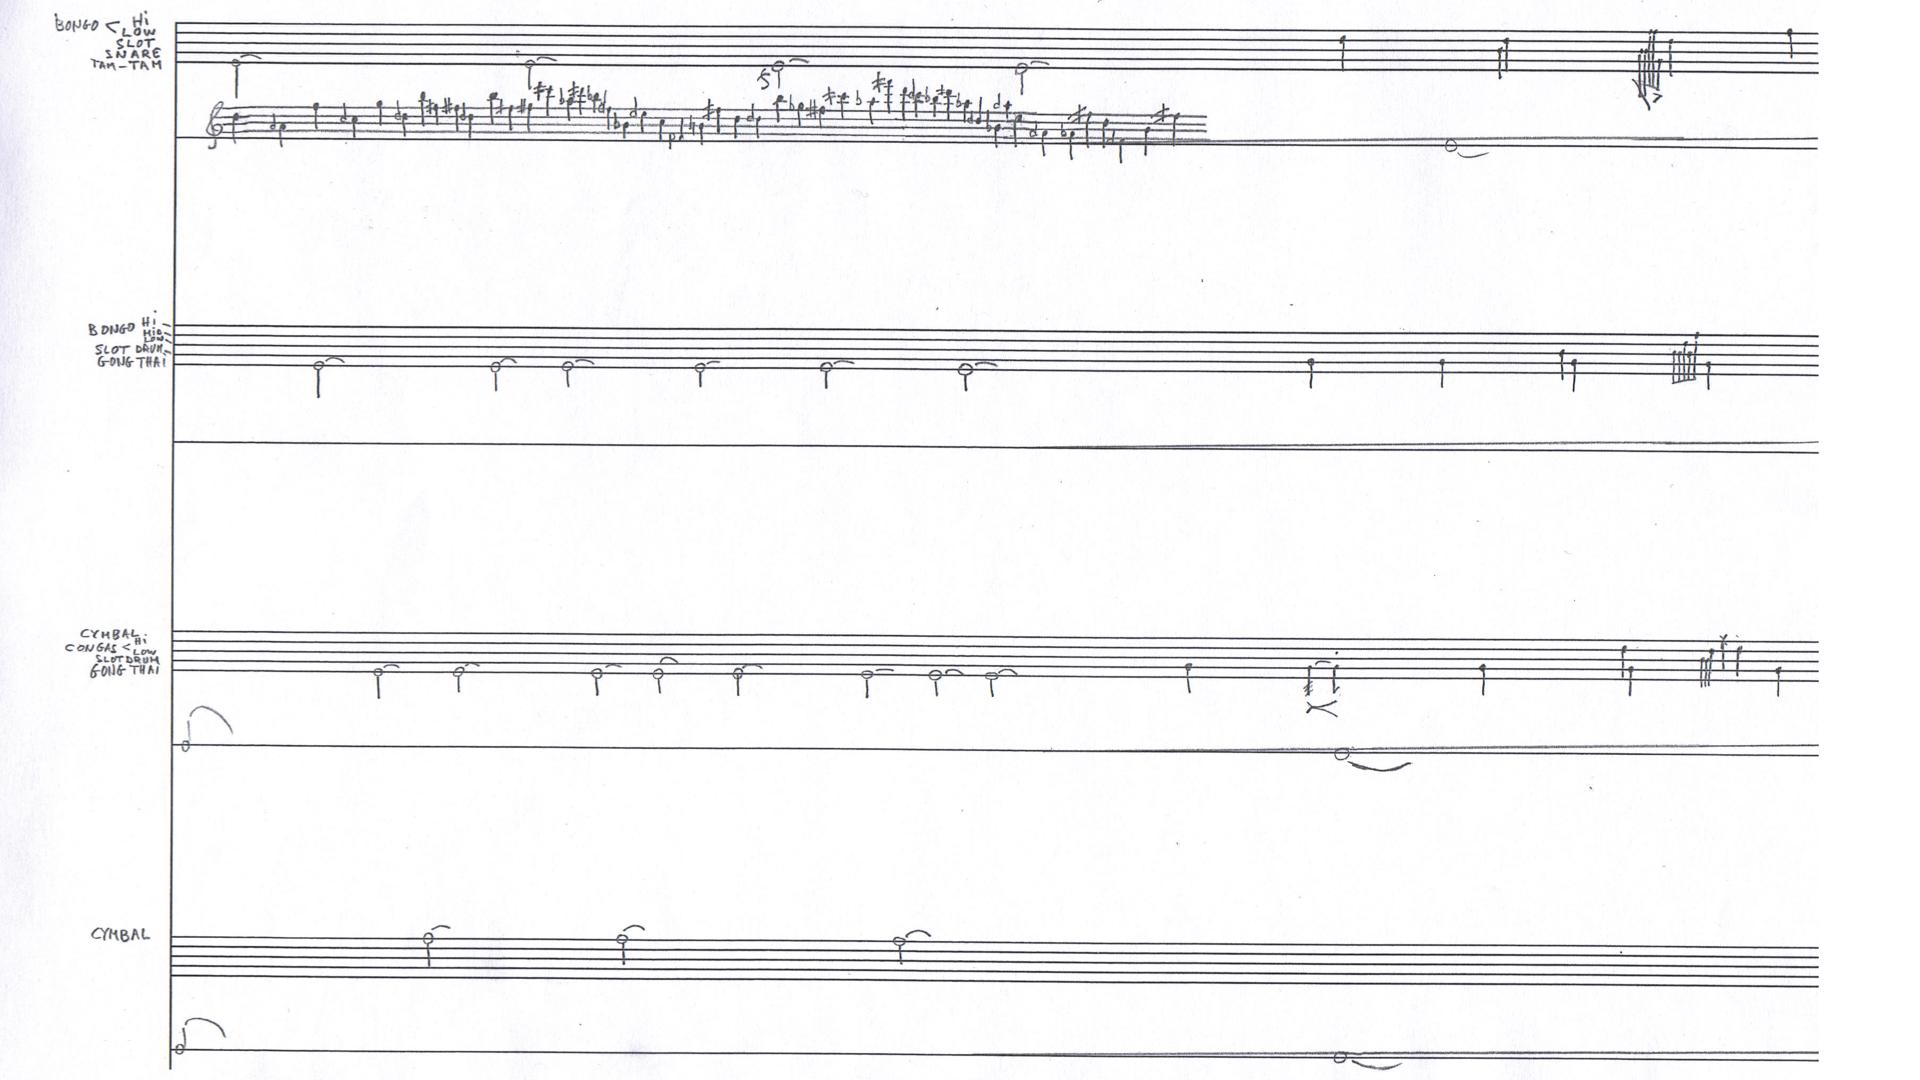 BONGO < Hi
LOW
SLOT
SNARE
TAM-TAM
5
BONGO Hi
MID
LOW
SLOT DRUM
GONG THAI
CYMBAL
CONGAS < Hi
LOW
SLOT DRUM
GONG THAI
CYMBAL